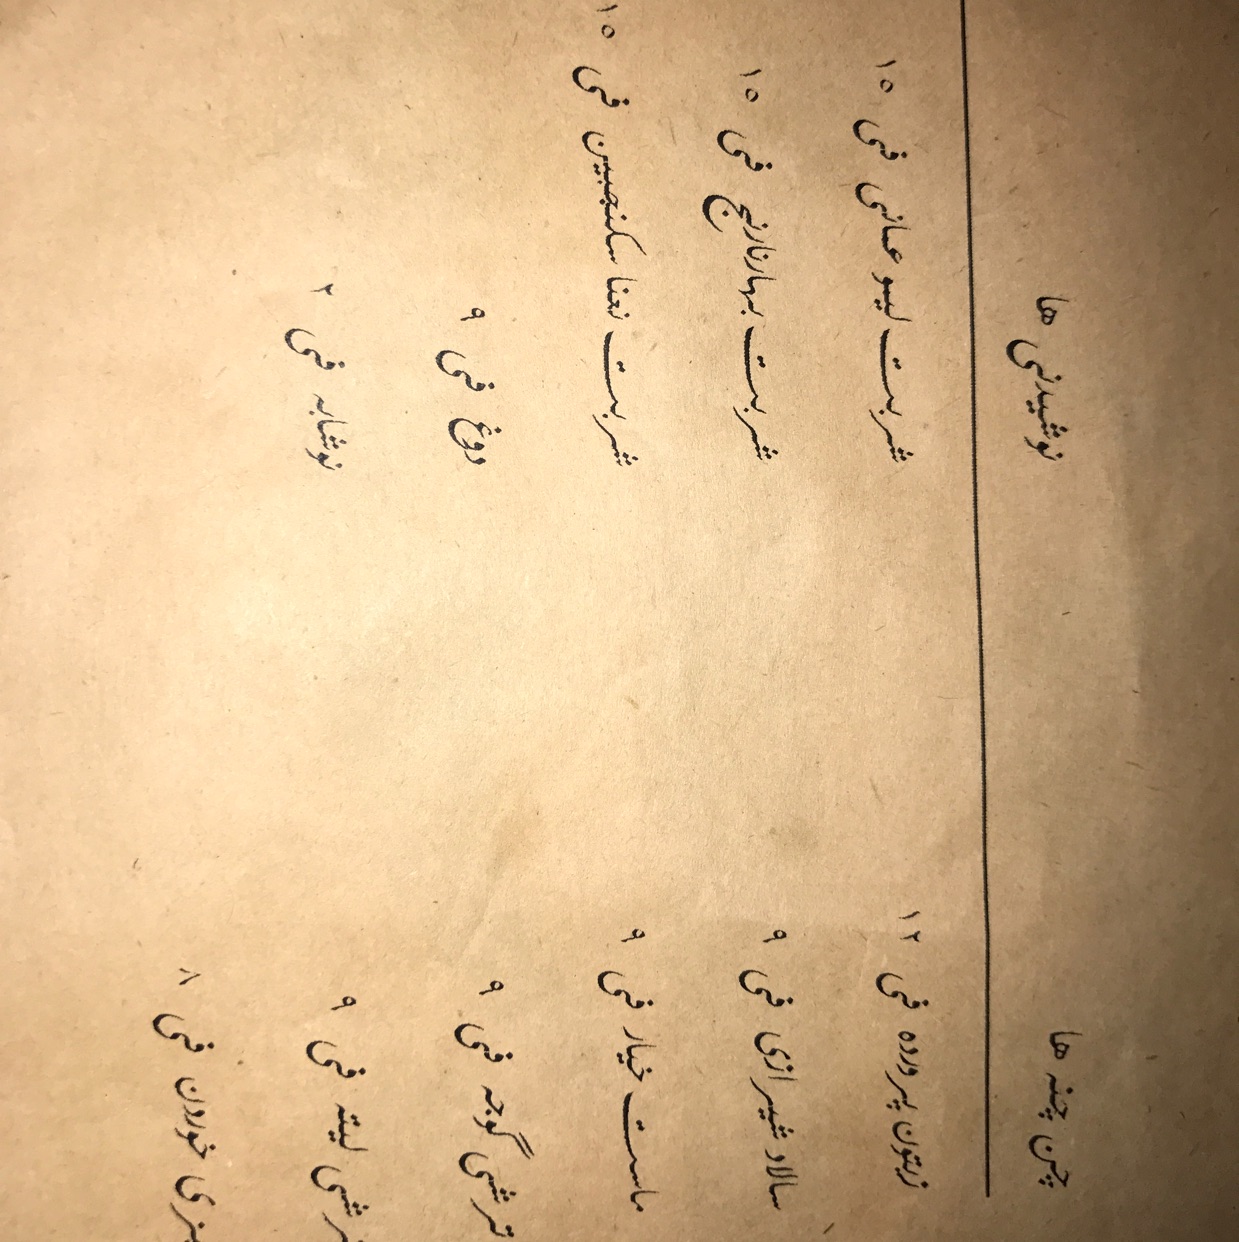 نوشیدنی ها
شربت لیمو عمانی فی ۱۵
شربت بهارنارنج فی ۱۵
شربت نعنا سکنجبین فی ۱۵
دوغ فی ۹
نوشابه فی ۲
چن چنه ها
زیتون پرورده فی ۱۲
سالاد شیرازی فی ۹
ماست خیار فی ۹
ترشی گوجه فی ۹
ترشی لیته فی ۹
خوردن فی ۸